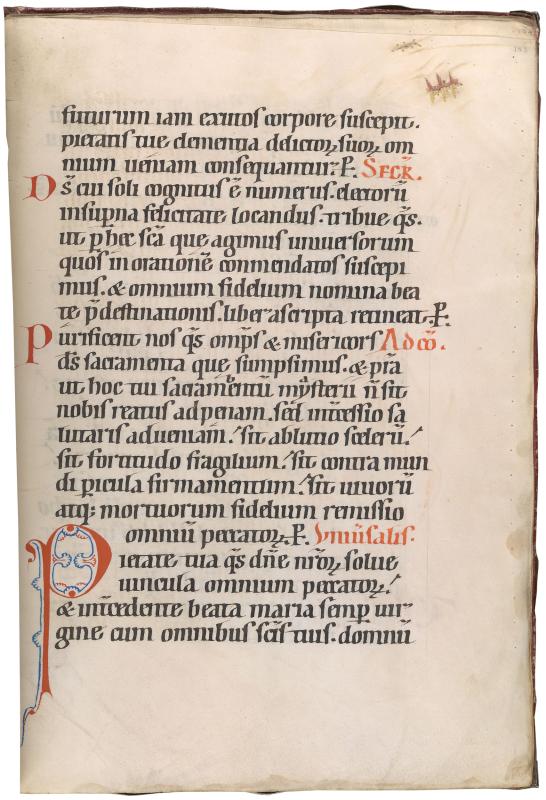 futurum iam exutos corpore suscepit.
pietatis tue clementia delictoꝝ suoꝝ om
nium ueniam consequantur? P̄. SECR̄.
Ds̄ cui soli cognitus ē numerus. electorū
insup̄na felicitate locandus. tribue q̄s.
ut p̄ hec sc̄a que agimus uniuersorum
quos in orationē commendatos suscepi
mus. & omnium fidelium nomina bea
te p̄destinationis. liber ascripta retineat. P̄.
Purificent nos q̄s omp̄s & misericors Ad cō.
ds̄ sacramenta que sumpsimus. & p̄ra
ut hoc tui sacramentū mysterii n̄ sit
nobis reatus ad penam. sed int̄cessio sa
lutaris ad ueniam. sit ablutio scelerū.
sit fortitudo fragilium. sit contra mun
di p̄icula firmamentum. sit uiuorū
atq; mortuorum fidelium remissio
omniū peccatoꝝ. P̄. Vniūsalis.
Pietate tua q̄s dn̄e nr̄oꝝ solue
uincula omnium peccatoꝝ.
& int̄cedente beata maria semp̄ uir
gine cum omnibus sc̄is tuis. domnū